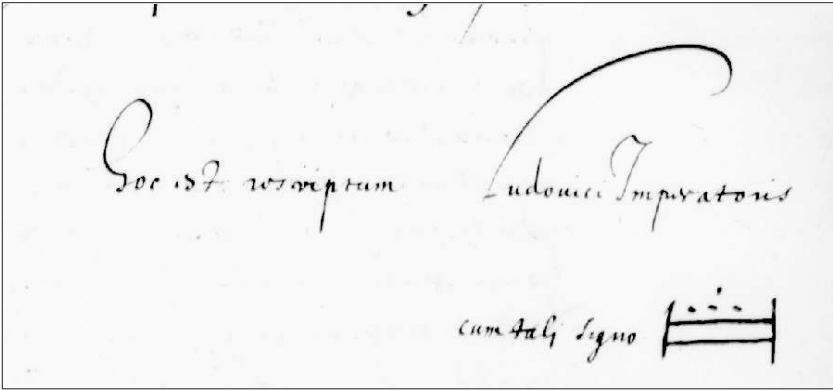 Hoc est rescriptum Ludovici Imperatoris
cum tali signo